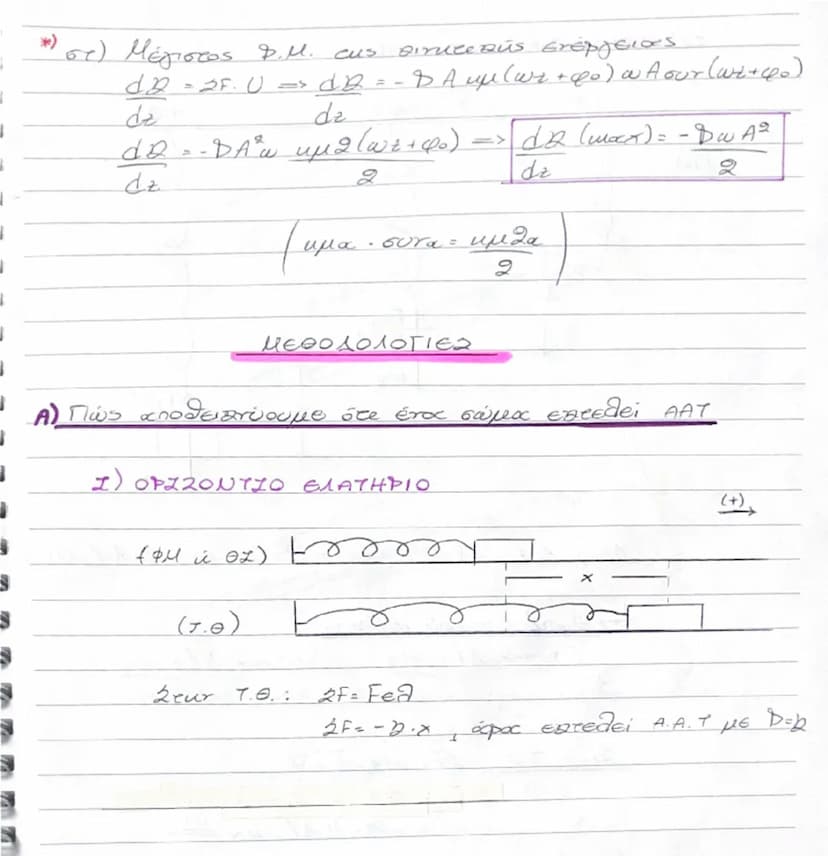 *) στ) Μέγιστος Ρ.Μ. της κινητικής ενέργειας
dK/dt = ΣF.U => dK/dt = -DAημ(ωt+φο)ωAσυν(ωt+φο)
dK/dt = -DA²ω ημ2(ωt+φο)/2 => dK/dt (max) = -DωA²/2
(ημα . συνα = ημ2α/2)
ΜΕΘΟΔΟΛΟΓΙΕΣ
Α) Πώς αποδεικνύουμε ότι ένας σώμα εκτελεί ΑΑΤ
Ι) ΟΡΙΖΟΝΤΙΟ ΕΛΑΤΗΡΙΟ
(+)
(ΦΜ ή ΘΙ)
x
(Τ.Θ)
Στην Τ.Θ.: ΣF = Fελ
ΣF = -K.x, άρα εκτελεί Α.Α.Τ με D=K